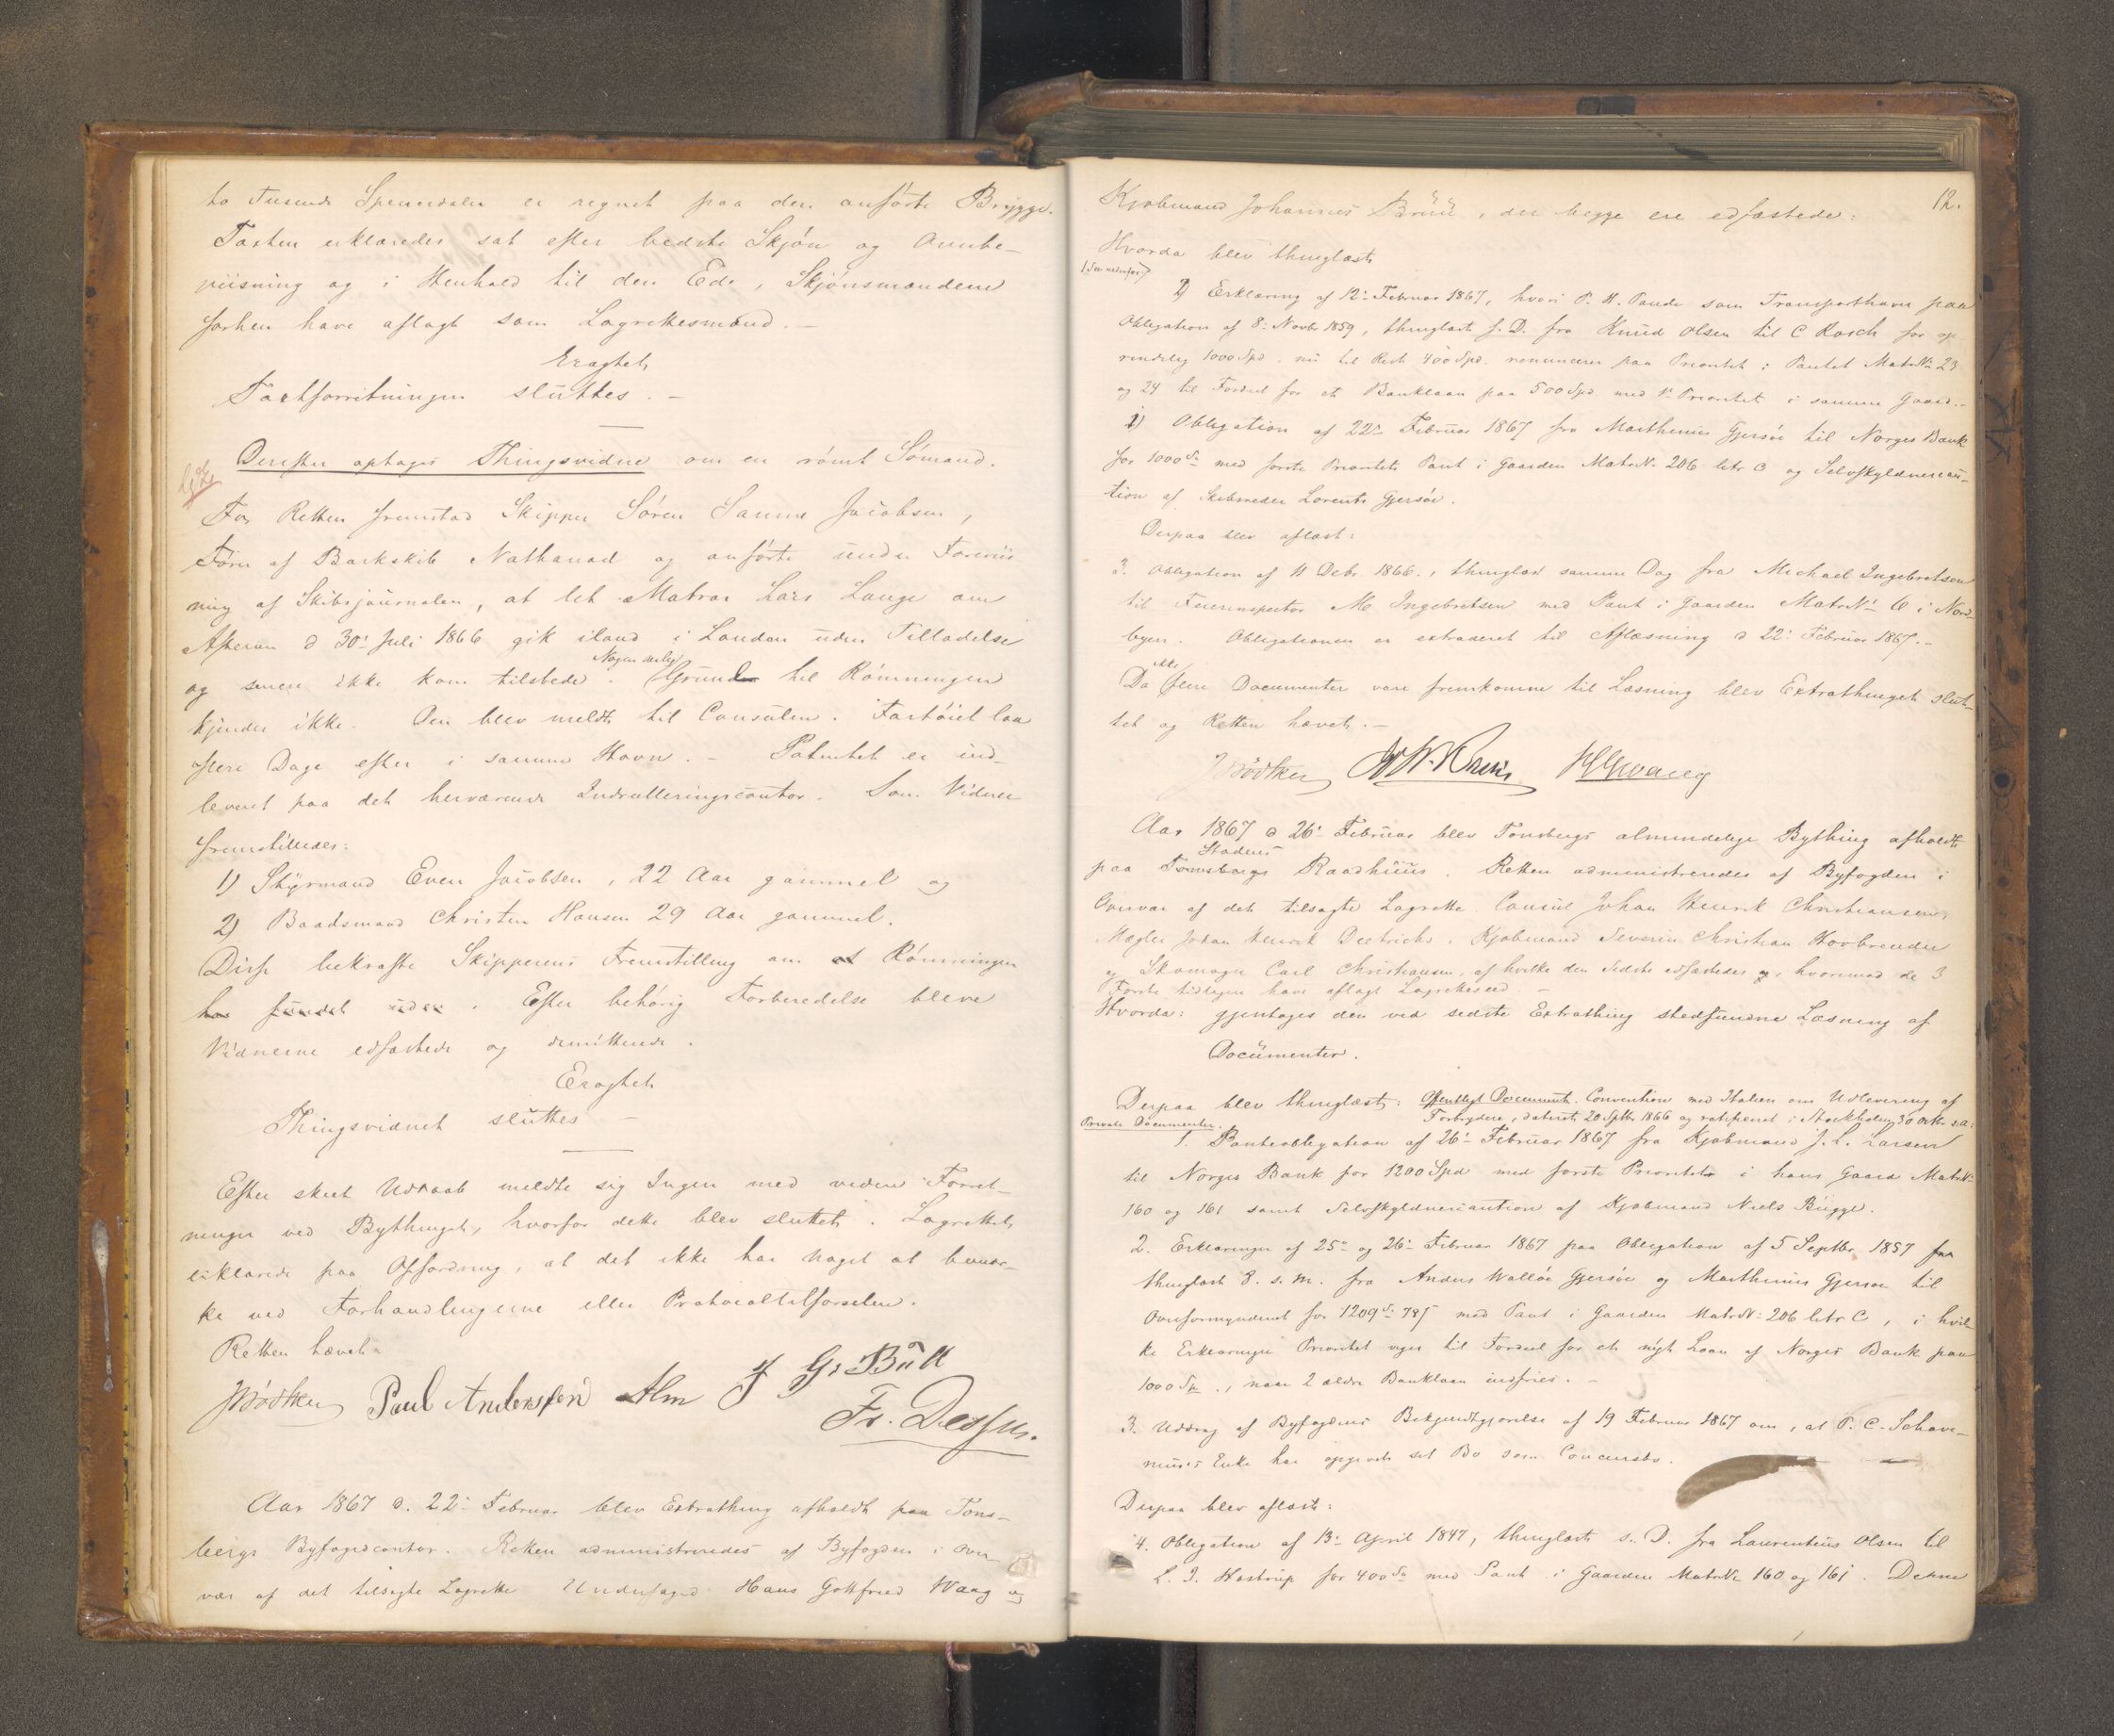 to Tusende Speciedaler er regnet paa den anførte Brygge.
Taxten erklæredes sat efter bedste Skjøn og Overbe-
viisning og i Henhold til den Eed, Skjønsmændene
forhen have aflagt som Lagrettesmænd. –
Eragtet
Taxtforretningen sluttes. –
Derefter optages Thingsvidne om en rømt Sømand.
For Retten fremstod Skipper Søren Sanne Jacobsen,
Fører af Barkskib Nathanael og anførte under Foreviis
ning af Skibsjournalen, at let. Matros Lars Lange om
Aftenen d 30' Juli 1866 gik iland i London uden Tilladelse
og senere ikke kom tilstede. Nogen særlig Grund til Rømningen
kjendes ikke. Den blev meldt til Consulen. Fartøiet laa
flere Dage efter i samme Havn. – Patentet er ind-
leveret paa det herværende Indrulleringscontor. Som Vidner
fremstilledes:
1) Styrmand Even Jacobsen, 22 Aar gammel og
2) Baadsmand Christen Hansen 29 Aar gammel.
Disse bekræfte Skipperens Fremstilling om at Rømningen
har fundet sted. Efter behørig Forberedelse bleve
Vidnerne edfæstede og demitterede.
Eragtet
Thingsvidnet sluttes –
Efter skeet Udraab meldte sig Ingen med videre Forret-
ninger ved Bythinget, hvorfor dette blev sluttet. Lagrettet
erklærede paa Opfordring, at det ikke har Noget at bemær-
ke ved Forhandlingerne eller Protocoltilførselen.
Retten hævet.
JBødtker Paul Anderssen Alm J Gs Bull
Aar 1867 d. 22' Februar blev Extrathing afholdt paa Tøns-
bergs Byfogedcontor. Retten administreredes af Byfogden i Over-
vær af det tilsagte Lagrette Undertoged Hans Gottfried Waag og
12.
Kjøbmand Johannes Bruu, der begge ere edfæstede:
Hvorda blev thinglæst
2) Erklæring af 12' Februar 1867, hvori P. H. Paude som Transporthaver paa
Obligation af 8' Novbr 1859, thinglæst s. D. fra Knud Olsen til C Rosch for op
rindelig 1000 Spd. nu til Rest 400 Spd. renuncerer paa Prioritet i Pantet MatrNr 23
og 24 til Fordeel for et Banklaan paa 500 Spd. med 1' Prioritet i samme Gaard. –
1) Obligation af 22' Februar 1867 fra Marthinus Gjersøe til Norges Bank
for 1000 Sp med første Prioritets Pant i Gaarden MatrN. 206 litr C og Selvskyldnercau-
tion af Skibsreder Lorents Gjersøe.
Derpaa blev aflæst:
3. Obligation af 11 Debr. 1866., thinglæst samme Dag fra Michael Ingebretsen
til Feierinspector M Ingebretsen med Pant i Gaarden MatrN' 6 i Nord-
byen. Obligationen er extraderet til Aflæsning d 22' Februar 1867. –
Da ikke flere Documenter vare fremkomne til Læsning blev Extrathinget slut-
tet og Retten hævet. –
JBødtker HGWaag
Aar 1867 d 26' Februar blev Tønsbergs almindelige Bything afholdt
paa Stadens Tønsbergs Raadhuus. Retten administreredes af Byfogden i
Overvær af det tilsagte Lagrette Consul Johan Henrik Christiansen,
Mægler Johan Henrik Dietrichs, Kjøbmand Severin Christian Hovbrender
og Skomager Carl Christiansen, af hvilke den Sidste edfæstedes og hvorimod de 3
Første tidligere have aflagt Lagretteseed. –
Hvorda: gjentages den ved sidste Extrathing stedfundne Læsning af
Documenter.
Derpaa blev thinglæst: Offentligt Document. Convention med Italien om Udlevering af
Forbrydere, dateret 20 Septbr 1866 og ratificeret i Stockholm 30 Octbr s.A.
Private Documenter.
1. Panteobligation af 26' Februar 1867 fra Kjøbmand J. L. Larsen
til Norges Bank for 1200 Spd med første Prioritet i hans Gaard MatrN:
160 og 161 samt Selvskyldnercaution af Kjøbmand Niels Bugge.
2. Erklæringer af 25' og 26' Februar 1867 paa Obligation af 5 Septbr. 1857 fra
thinglæst 8. s. M. fra Anders Walløe Gjersøe og Marthinus Gjersøe til
Overformynderiet for 1209 Sp 78 s med Pant i Gaarden MatrN: 206 litr C, i hvil-
ke Erklæringer Prioritet viges til Fordeel for et nyt Laan af Norges Bank paa
1000 Sp., naar 2 ældre Banklaan indfries. –
3. Uddrag af Byfogdens Bekjendtgjørelse af 19 Februar 1867 om, at P. C. Schave-
nius's Enke har opgivet sit Bo som Concursbo.
Derpaa blev aflæst:
4. Obligation af 13' April 1847, thinglæst s. D. fra Laurentius Olsen til
L. J. Hastrup for 400 Sp med Pant i Gaarden MatrNr 160 og 161. Denne